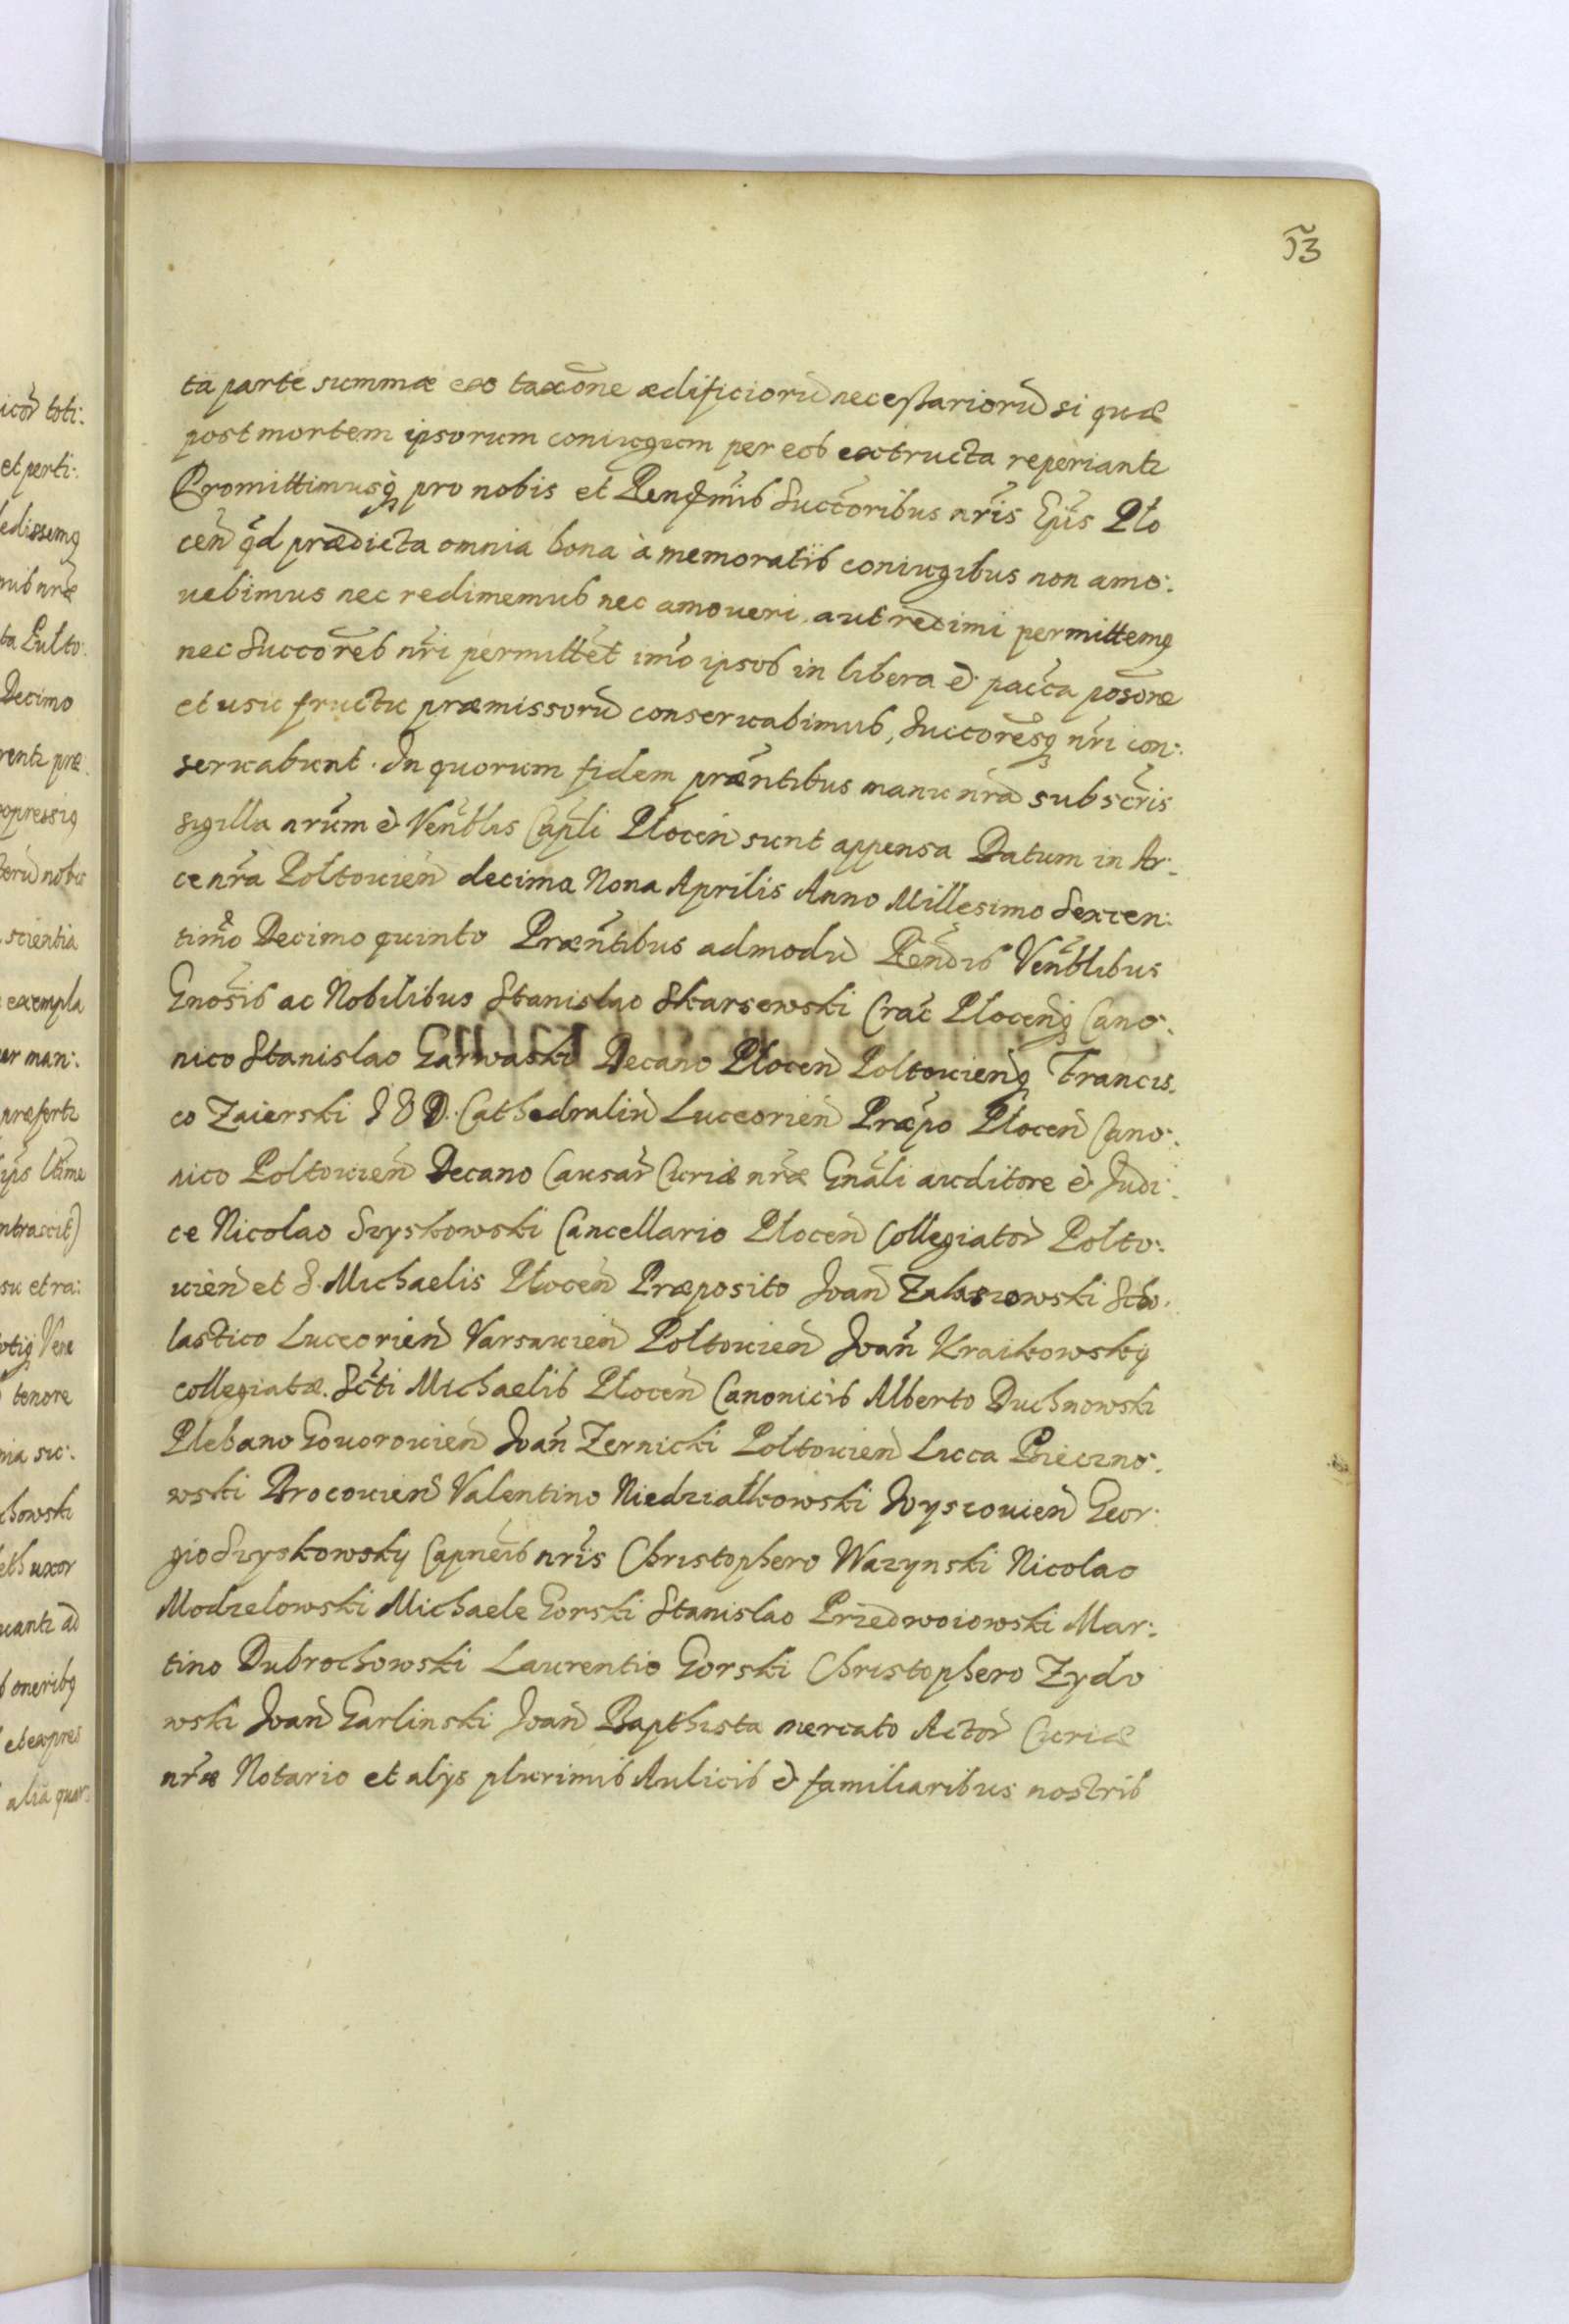 53
ta parte summæ exo taxōne ædificiorū necessariorū si quæ
post mortem ipsorum coniugum per eos extructa reperiantr
Promittimusq pro nobis et Rendmis Succoribus nris Epis Plo
cen qd prædicta omnia bona à memoratis coniugibus non amo:
uebimus nec redimemus nec amoueri aut redimi permittemq
nec Succores nri permittet imo ipsos in libera et pacca posone
et usu fructu præmissorū conseruabimus, Succoresq nri con:
seruabunt. In quorum fidem præntibus manu nra subscris
sigilla nrum et Venblis Capli Plocen sunt appensa Datum in Ar:
ce nra Poltouien decima Nona Aprilis Anno Millesimo Sexcen:
timo Decimo quinto Præntibus admodū Rendis Venblibus
Gnosis ac Nobilibus Stanislao Skarsewski Crac Plocenq Cano:
nico Stanislao Garwaski Decano Plocen Poltouienq Francis:
co Zaierski I V D. Cathedralin Luceorien Præpo Plocen Cano:
nico Poltouien Decano Causar Curiæ nræ Gnali auditore et Judi:
ce Nicolao Szyskowski Cancellario Plocen Collegiator Polto:
uien et S. Michaelis Plocen Præposito Joan Zalaszowski Scho:
lastico Luceorien Varsauien Poltouien Joan Kraikowsky
collegiatæ. Scti Michaelis Plocen Canonicis Alberto Duchnowski
Plebano Gouorouien Joan Zernicki Poltouien Luca Pnieczno:
wski Brocouien Valentino Niedziałkowski Wyscouien Geor:
gio Szyskowsky Capneis nris Christophero Wazynski Nicolao
Modzelowski Michaele Gorski Stanislao Przedwoiowski Mar:
tino Dubrochowski Laurentio Gorski Christophero Zydo
wski Joan Garlinski Joan Bapthista mercato Actor Curiæ
nræ Notario et alijs plurimis Aulicis et familiaribus nostris